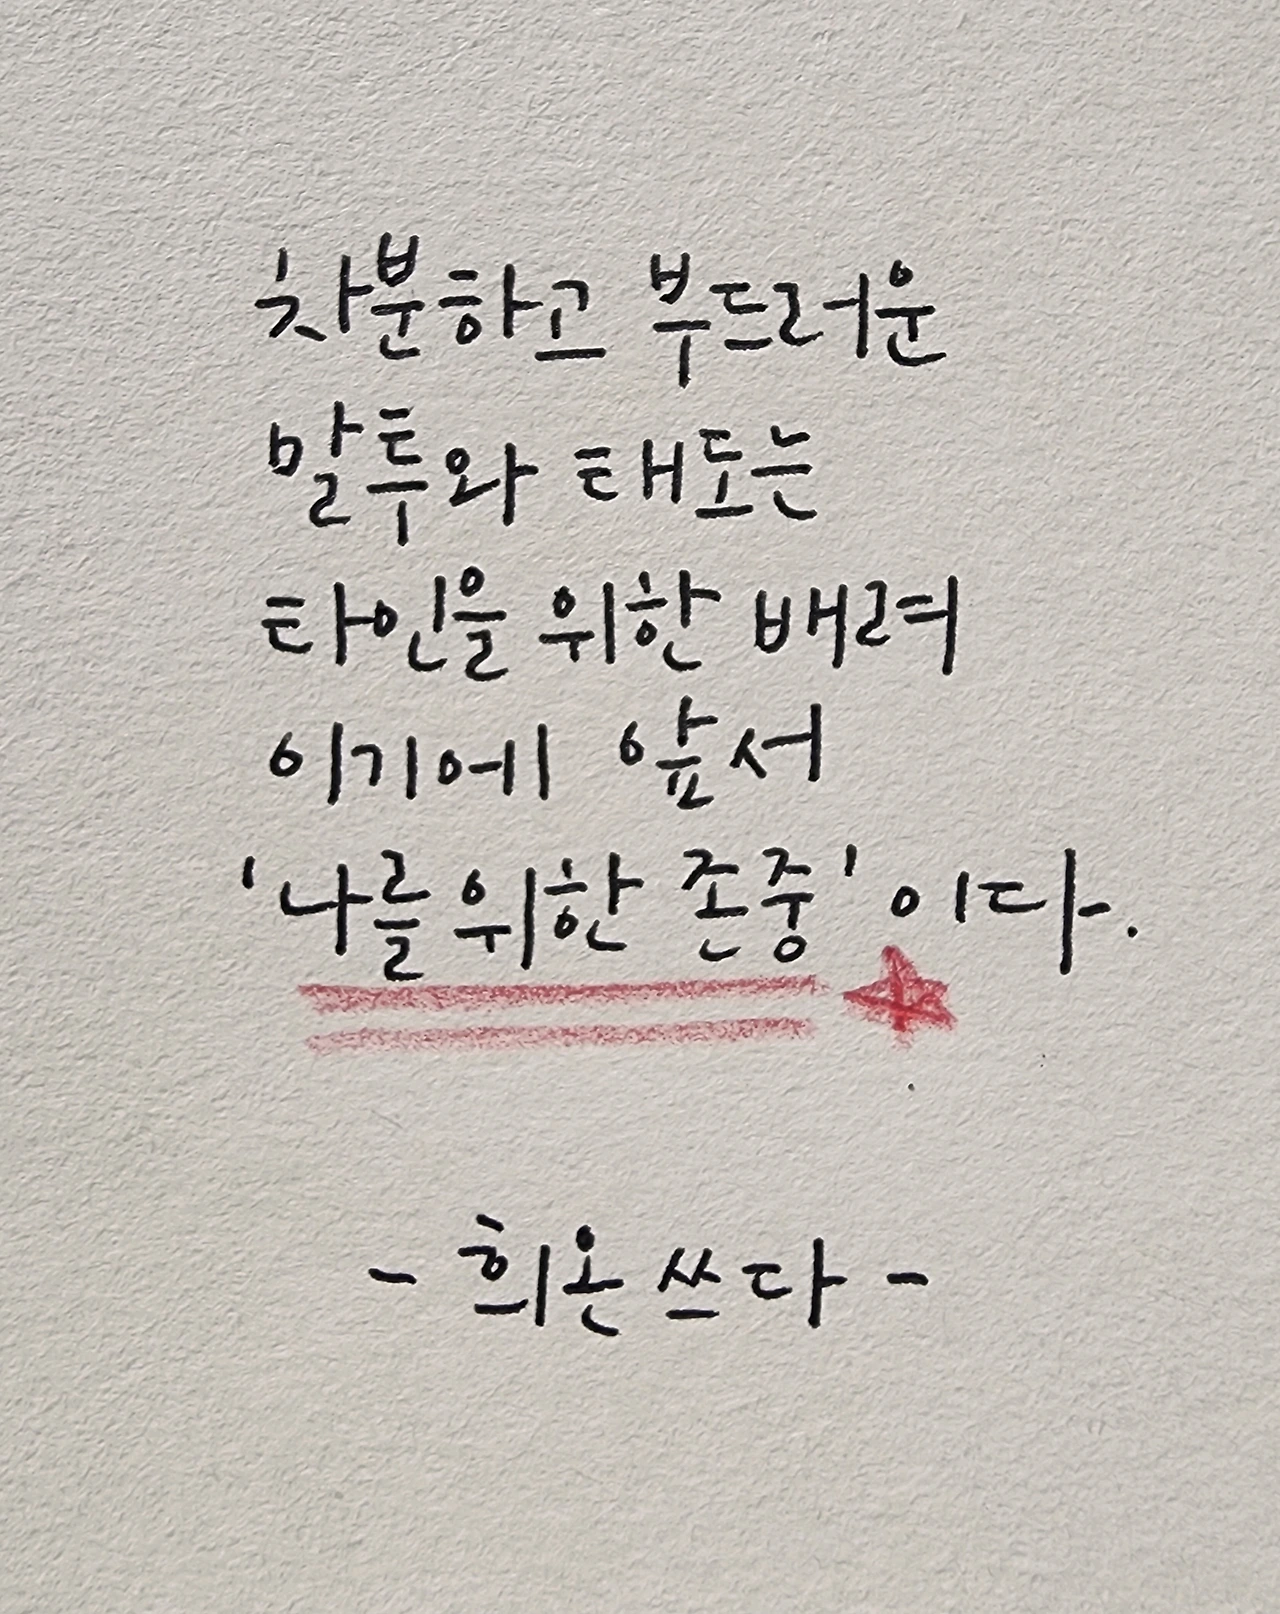 차분하고 부드러운
말투와 태도는
타인을 위한 배려
이기에 앞서
'나를 위한 존중' 이다.
- 희온 쓰다 -